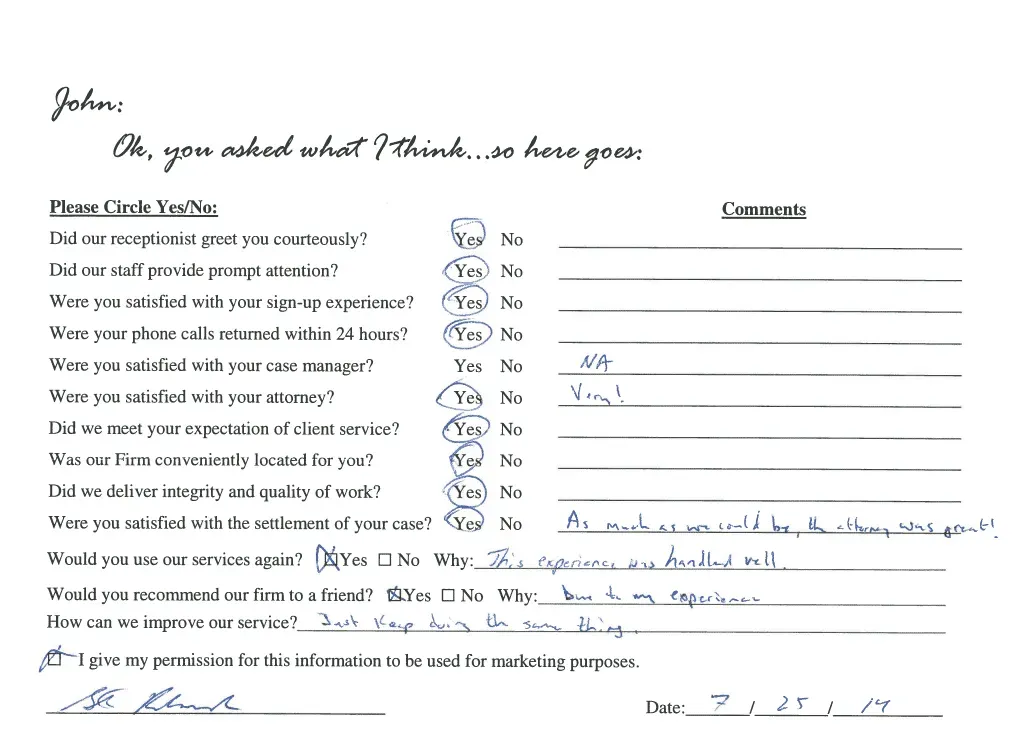 John:
Ok, you asked what I think...so here goes:
Please Circle Yes/No: Comments
Did our receptionist greet you courteously? Yes No
Did our staff provide prompt attention? Yes No
Were you satisfied with your sign-up experience? Yes No
Were your phone calls returned within 24 hours? Yes No
Were you satisfied with your case manager? Yes No NA
Were you satisfied with your attorney? Yes No Very!
Did we meet your expectation of client service? Yes No
Was our Firm conveniently located for you? Yes No
Did we deliver integrity and quality of work? Yes No
Were you satisfied with the settlement of your case? Yes No As much as we could be, the attorney was great!
Would you use our services again? Yes No Why: This experience was handled well.
Would you recommend our firm to a friend? Yes No Why: Due to my experience
How can we improve our service? Just keep doing the same thing.
I give my permission for this information to be used for marketing purposes.
Date: 7 / 25 / 14